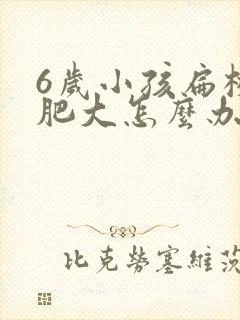 6歲小孩扁桃
肥大怎麼办
比克勞塞維茨